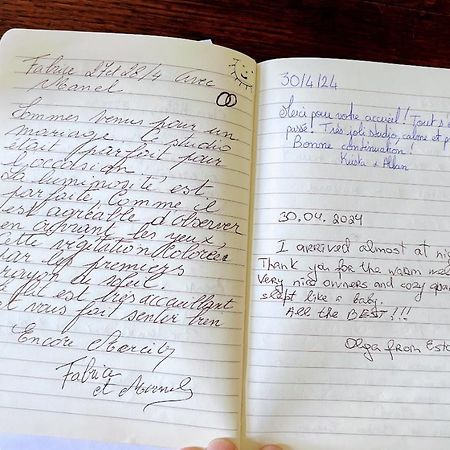 Fabrice 27 et 28/4 avec
Manel
Sommes venus pour un
mariage, le studio
était parfait pour
l'occasion.
La luminosité est
parfaite, comme il
est agréable d'observer
en ouvrant les yeux
cette végétation colorée
par les premiers
rayon de soleil.
Le lit est très accueillant
et vous fait sentir bien
Encore Merci
et
30/4/24
Merci pour votre accueil! Tout s'
passé! Très joli studio, calme et p
Bonne continuation!
30.04.2024
I arrived almost at nig
Thank you for the warm wel
Very nice owners and cozy apar
slept like a baby.
All the BEST!!!
Olga from Esto